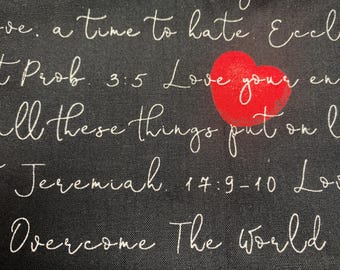 ove. a time to hate. Eccl
t Prob. 3:5 Love your en
all these things put on l
Jeremiah. 17:9-10 Lov
Overcome The World